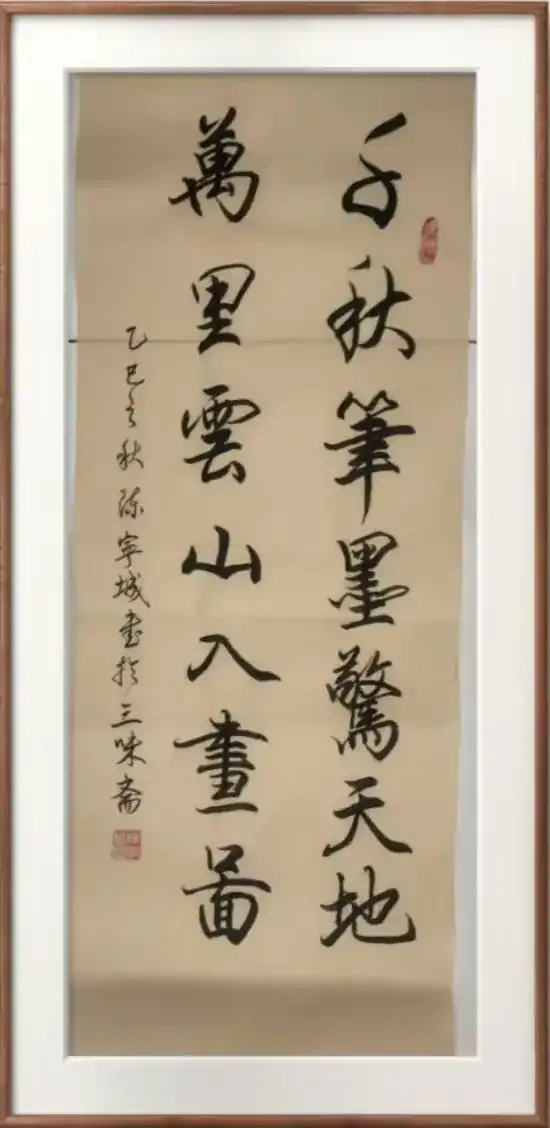 千秋筆墨驚天地
萬里雲山入畫圖
乙巳之秋陈宇城書於三味斋